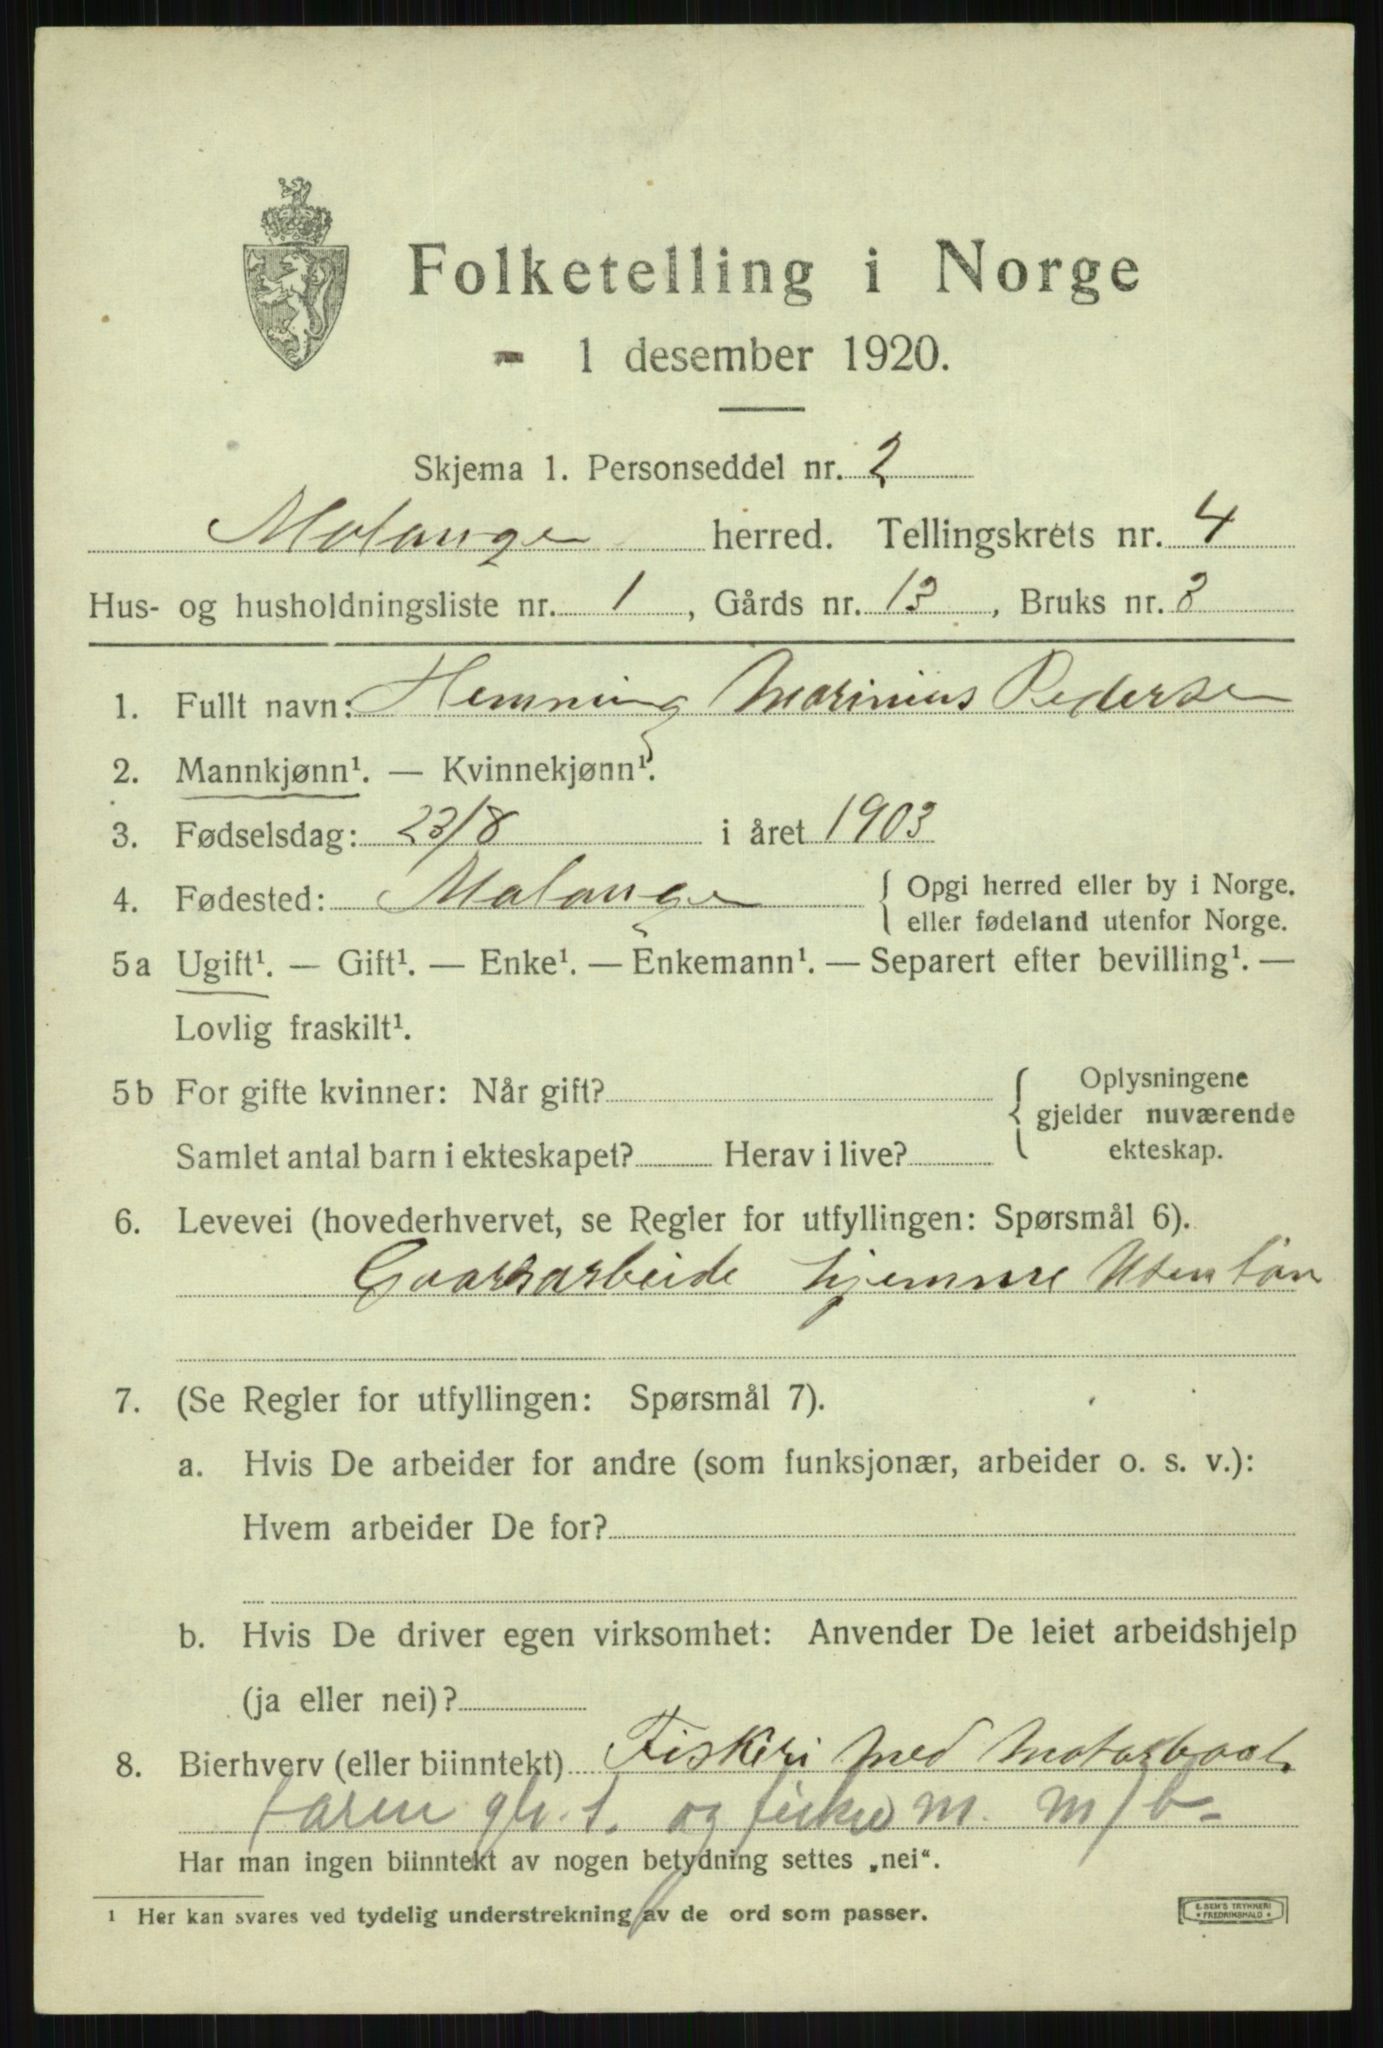 Folketelling i Norge
1 desember 1920.
Skjema 1. Personseddel nr. 2
Malange herred. Tellingskrets nr. 4
Hus- og husholdningsliste nr. 1, Gårds nr. 13, Bruks nr. 3
1. Fullt navn: Hemming Marinius Pederse
2. Mannkjønn¹. — Kvinnekjønn¹.
3. Fødselsdag: 23/8 i året 1903
4. Fødested: Malange { Opgi herred eller by i Norge.
eller fødeland utenfor Norge.
5a Ugift¹. — Gift¹. — Enke¹. — Enkemann¹. — Separert efter bevilling¹. —
Lovlig fraskilt¹.
5b For gifte kvinner: Når gift?
Samlet antal barn i ekteskapet? Herav i live?
Oplysningene
gjelder nuværende
ekteskap.
6. Levevei (hovederhvervet, se Regler for utfyllingen: Spørsmål 6).
Gaarsarbeide hjemme Uten løn
7. (Se Regler for utfyllingen: Spørsmål 7).
a. Hvis De arbeider for andre (som funksjonær, arbeider o. s. v.):
Hvem arbeider De for?
b. Hvis De driver egen virksomhet: Anvender De leiet arbeidshjelp
(ja eller nei)?
8. Bierhverv (eller biinntekt) Fiskeri med Motorbaat.
og fisker m. m/b.
Har man ingen biinntekt av nogen betydning settes „nei“.
1 Her kan svares ved tydelig understrekning av de ord som passer.
E. SEM'S TRYKKERI
FREDRIKSHALD